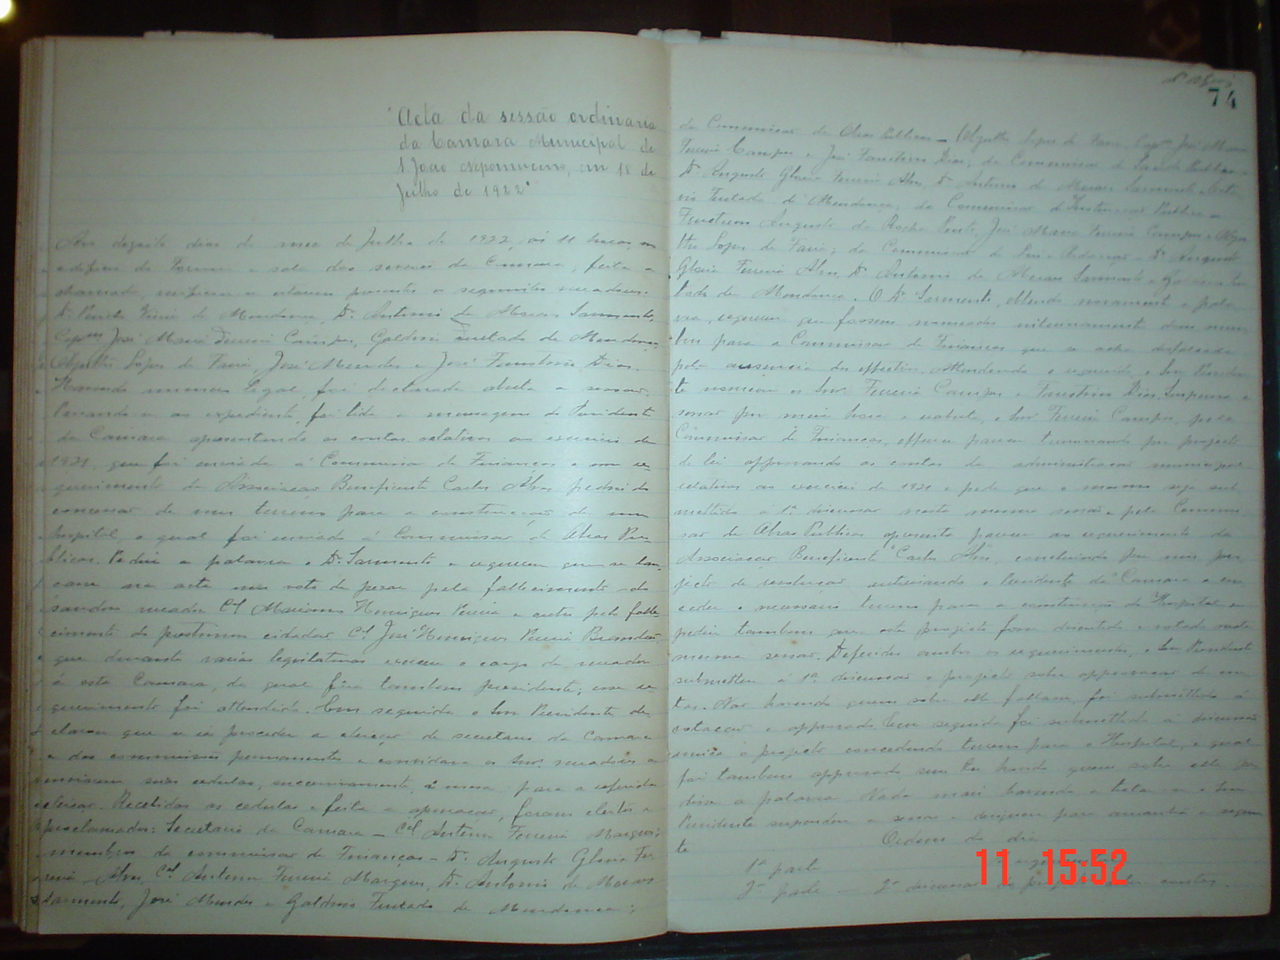 "Acta da sessão ordinaria
da Camara Municipal de
S. João Nepomuceno, em 18 de
Julho de 1922"
Aos dezoito dias do mez de Julho de 1922, ás 11 horas, no
edificio do Forum e sala das sessões da Camara, feita a
chamada, verificou-se estarem presentes os seguintes vereadores:
Dr. Pericles Vieira de Mendonça, Dr. Antonio de Moraes Sarmento,
Capm José Maria Ferreira Campos, Galdino Furtado de Mendonça,
Agostho Lopes de Faria, José Mendes e José Faustino Dias.
Havendo numero legal, foi declarada aberta a sessão.
Passando-se ao expediente, foi lida a mensagem do Presidente
da Camara apresentando as contas relativas ao exercicio de
1921, que foi enviada á Commissão de Finanças e um re-
querimento da Associacao Beneficente Carlos Alves pedindo
concessão de um terreno para a construcção de um
hospital, o qual foi enviado á Commissão de Obras Pu-
blicas. Pediu a palavra o Dr. Sarmento e requereu que se lan-
çasse na acta um voto de pezar pelo fallecimento do
saudoso vereador Cel Marianno Henriques Pereira e outro pelo falle-
cimento do prestimoso cidadão Cel José Henriques Pereira Brandão
que durante varias legislaturas exerceu o cargo de vereador
á esta Camara, da qual fôra tambem presidente; esse re-
querimento foi attendido. Em seguida o Snr. Presidente de-
clarou que se ia proceder a eleição de secretario da Camara
e das commissões permanentes e convidava os Snrs. vereadores a
enviarem suas cedulas, successivamente, á mesa, para a referida
eleição. Recebidas as cedulas e feita a apuração, foram eleitos e
proclamados: Secretario da Camara — Cel Antonio Ferreira Marques;
membros da commissão de Finanças — Dr. Augusto Gloria Fer-
reira Alves, Cel Antonio Ferreira Marques, Dr. Antonio de Moraes
Sarmento, José Mendes e Galdino Furtado de Mendonça;
74
da Commissão de Obras Publicas — Agostho Lopes de Faria, Capm José Maria
Ferreira Campos e José Faustino Dias; da Commissão de Saude Publica —
Dr. Augusto Gloria Ferreira Alves, Dr. Antonio de Moraes Sarmento e
Furtado de Mendonça; da Commissão de Instrucção Publica —
Augusto da Rocha José Maria Ferreira Campos e Agos-
tho Lopes de Faria; da Commissão de Leis e Redacção — Dr. Augusto
Gloria Ferreira Alves, Dr. Antonio de Moraes Sarmento e Fur-
tado de Mendonça. O Dr. Sarmento, obtendo novamente a pala-
vra, requereu que fossem nomeados interinamente dous mem-
bros para a Commissão de Finanças que se acha desfalcada
pela ausencia dos effectivos. Attendendo o requerido, o Snr. Presiden-
te nomeou os Snrs. Ferreira Campos e Faustino Dias. Suspensa a
sessão por meia hora e reaberta, o Snr. Ferreira Campos, pela
Commissão de Finanças, offerece parecer terminando por projecto
de lei approvando as contas da administração municipal
relativas ao exercicio de 1921 e pede que o mesmo seja sub-
mettido á 1ª discussão nesta mesma sessão e pela Commis-
são de Obras Publicas apresenta parecer ao requerimento da
Associacao Beneficente "Carlos Alves", concluindo por um pro-
jecto de resolução autorisando o Presidente da Camara a con-
ceder o necessario terreno para a construcção do Hospital e
pediu tambem que este projecto fosse discutido e votado nesta
mesma sessão. Deferidos ambos os requerimentos, o Snr. Presidente
submetteu á 1ª discussão o projecto sobre approvação de con-
tas. Não havendo quem sobre elle fallasse, foi submettido á
votação e approvado. Em seguida foi submettido á discussão
unica o projecto concedendo terreno para o Hospital, o qual
foi tambem approvado sem haver quem sobre elle pe-
disse a palavra. Nada mais havendo a tratar o Snr.
Presidente suspendeu a sessão e designou para amanhã a seguin-
te
Ordem do dia
1ª parte
2ª parte — 2ª discussão do projecto sobre contas.
11 15:52